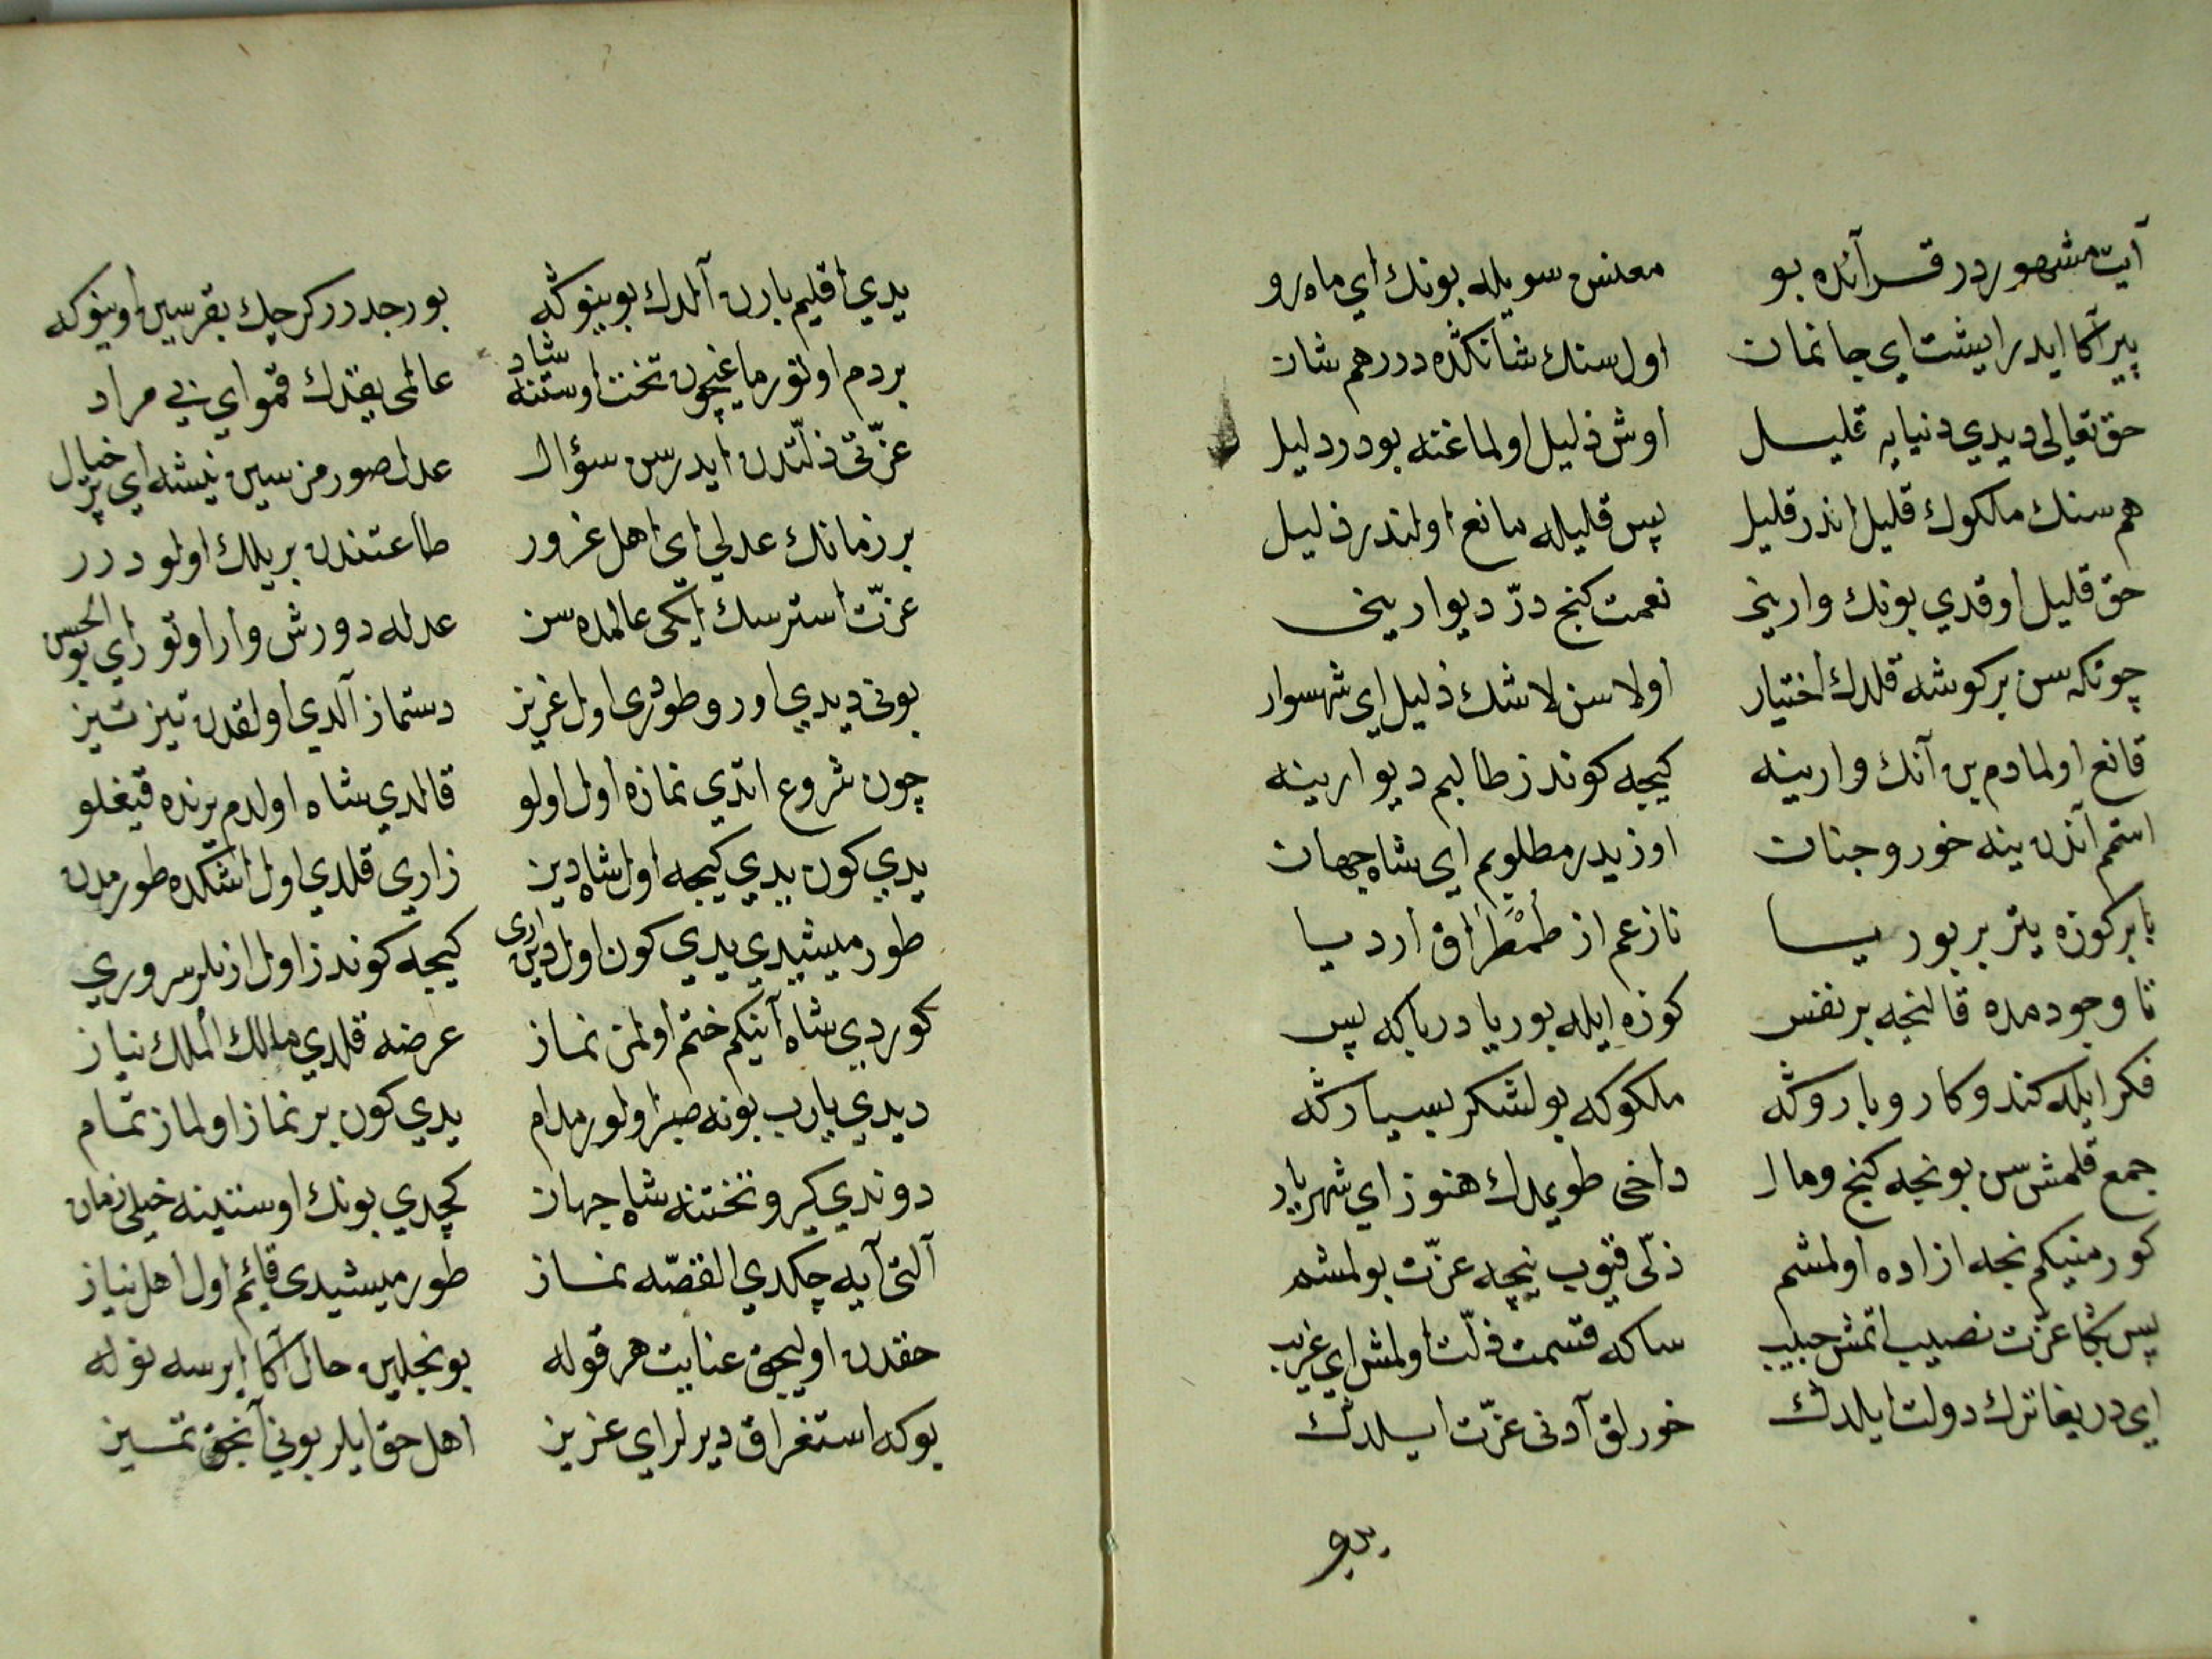 آیت مشهوردر قرآنده بو معنسن سویله بونك ای ماه رو
پیر آکا ایدر ایشت ای جانمان اول سنك شانکده در هم شان
حق تعالی دیدی دنیایه قلیل اوش ذلیل اولماغنه بودر دلیل
هم سنك ملکوك قلیل اندر قلیل پس قلیله مانع اولندر ذلیل
حق قلیل اوقدی بونك وارینی نعمت کنج در دیوارینی
چونکه سن بر کوشه قلدك اختیار اولاسن لاشك ذلیل ای شهسوار
قانع اولمادم بن آنك وارینه کیجه کوندز طالبم دیوارینه
استم آندن ینه خور و جنان اوزیدر مطلوبم ای شاه جهان
با بر کوزه یتر بر بوریا نازعم از طمطراق اردیا
تا وجودمده قالنجه بر نفس کوزه ایله بوریا دربا که پس
فکر ایله کندو کار و باروکه ملکوکه بو لشکر بسیارکه
جمع قلمش سن بونجه کنج و مال داخی طویمدك هنوز ای شهریار
کورمنیکم نجه ازاده اولمشم ذلی قیوب نیچه عزت بولمشم
پس بکا عزت نصیب اتمش حبیب ساکه قسمت ذلت اولمش ای غریب
ای دریغا ترك دولت ایلدك خورلق آدنی عزت ایلدك
یدی
یدی اقلیم بارن آلدك بوینوکه بو رجدر کرجك بقرسین اوینوکه
بردم اوتورماغیچون تخت اوستنه شاد عالمی یقدك قمو ای بی مراد
عزتی ذلتدن ایدرسن سؤال عدل صورمزسین نیشه ای پر خیال
بر زمانك عدلی ای اهل غرور طاعتندن بر یلك اولودرر
عزت استرسك ایکی عالمده سن عدله دورش وار اوتو زای بو الحسن
بونی دیدی اورو طوردی اول عزیز دستماز آلدی اولقدن تیز تیز
چون شروع اتدی نمازه اول اولو قالدی شاه اولدم یرنده قیغلو
یدی کون یدی کیجه اول شاه دین زاری قلدی اول اشکده طورمدن
طورمیشیدی یدی کون اول دین اری کیجه کوندز اول ازنلر سروری
کوردی شاه آنیکم ختم اولمز نماز عرضه قلدی مالك الملك نیاز
دیدی یارب بونه صبر اولور مدام یدی کون بر نماز اولماز تمام
دوندی کیرو تختنه شاه جهان کچدی بونك اوستینه خیلی زمان
آلتی آیه چکدی القصه نماز طورمیشیدی قایم اول اهل نیاز
حقدن اولیجق عنایت هر قوله بونجلین حال آکا ایرسه نوله
بوکه استغراق دیرلر ای عزیز اهل حق ایلر بونی آنجق تمییز